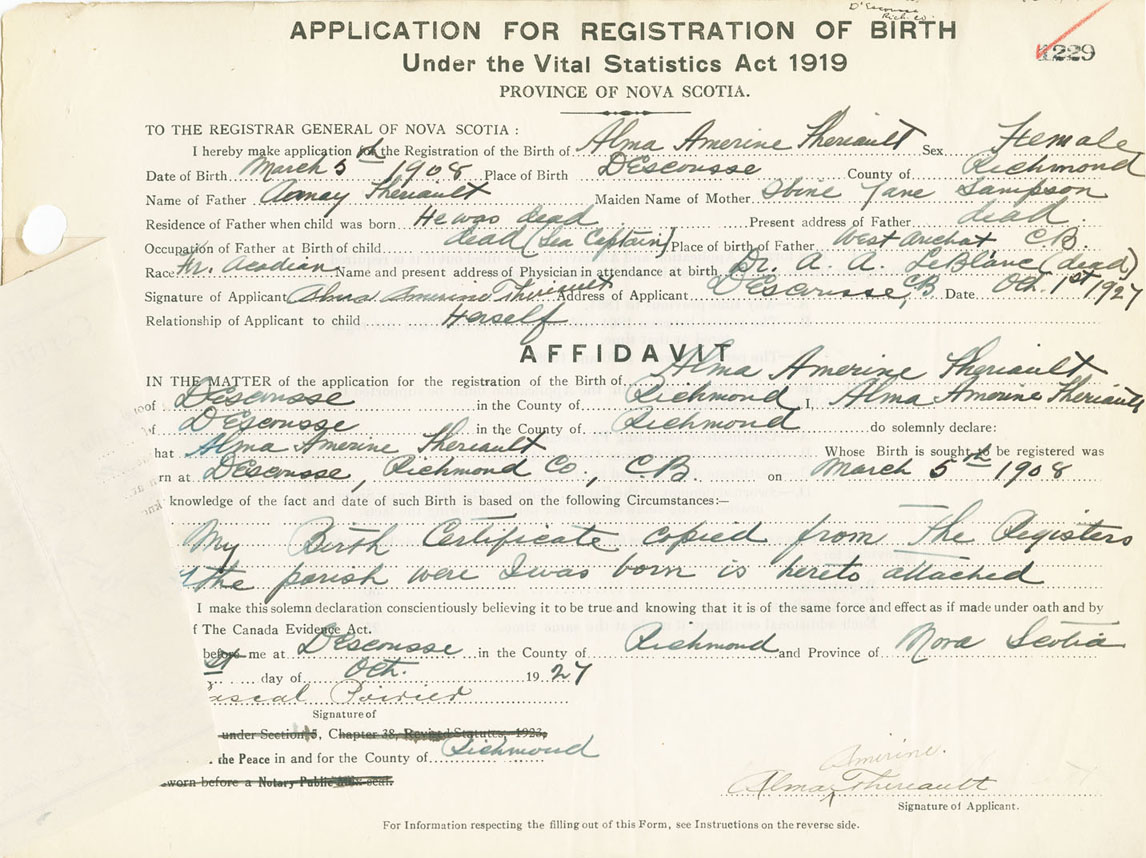 D'Escousse
Rich. Co.
APPLICATION FOR REGISTRATION OF BIRTH
1229
Under the Vital Statistics Act 1919
PROVINCE OF NOVA SCOTIA.
TO THE REGISTRAR GENERAL OF NOVA SCOTIA :
I hereby make application for the Registration of the Birth of Alma Amerine Theriault Sex Female
Date of Birth March 5th 1908 Place of Birth DEscousse County of Richmond
Name of Father Theriault Maiden Name of Mother Jane Sampson
Residence of Father when child was born He was dead Present address of Father dead
Occupation of Father at Birth of child dead (Sea Captain) Place of birth of Father West Arichat C.B.
Race Fr. Acadian Name and present address of Physician in attendance at birth Dr. A. A. LeBlanc (dead)
Signature of Applicant Alma Amerine Theriault Address of Applicant DEscousse, C.B. Date Oct. 1st 1927
Relationship of Applicant to child Herself
AFFIDAVIT
IN THE MATTER of the application for the registration of the Birth of Alma Amerine Theriault
of DEscousse in the County of Richmond I, Alma Amerine Theriault
of DEscousse in the County of Richmond do solemnly declare:
hat Alma Amerine Theriault Whose Birth is sought to be registered was
rn at DEscousse, Richmond Co., C.B. on March 5th 1908
knowledge of the fact and date of such Birth is based on the following Circumstances:—
My Birth Certificate copied from The Registers
of the parish were I was born is hereto attached
I make this solemn declaration conscientiously believing it to be true and knowing that it is of the same force and effect as if made under oath and by
f The Canada Evidence Act.
before me at DEscousse in the County of Richmond and Province of Nova Scotia
st day of Oct. 1927
ascal Poirier
Signature of
under Section 5, Chapter 38, Revised Statutes, 1923,
the Peace in and for the County of Richmond
worn before a Notary Public seal.
Amerine.
Alma Theriault
Signature of Applicant.
For Information respecting the filling out of this Form, see Instructions on the reverse side.